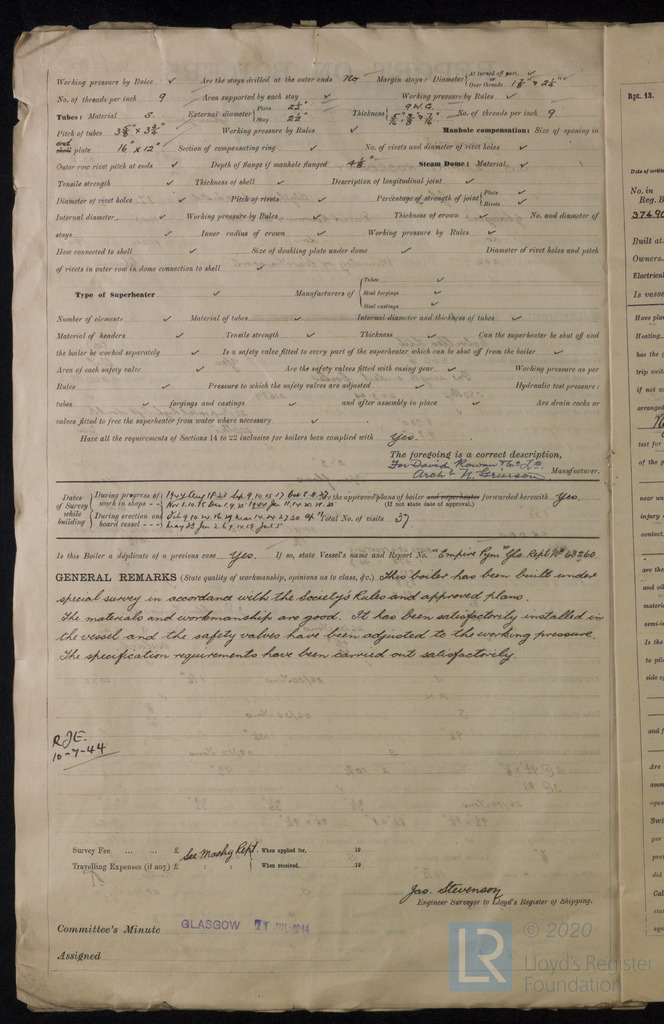 Working pressure by Rules ✓ Are the stays drilled at the outer ends No Margin stays: Diameter { At turned off part, ✓ Over threads 1 7/8" & 2 1/4" ✓
No. of threads per inch 9 Area supported by each stay ✓ Working pressure by Rules ✓
Tubes: Material S. External diameter { Plain 2 1/2" Stay 2 1/2" Thickness { 9 W.G. 5/16" 3/8" & 7/16" No. of threads per inch 9
Pitch of tubes 3 5/8" x 3 3/4" Working pressure by Rules ✓ Manhole compensation: Size of opening in
end shell plate 16" x 12" Section of compensating ring ✓ No. of rivets and diameter of rivet holes ✓
Outer row rivet pitch at ends ✓ Depth of flange if manhole flanged 4 1/8" Steam Dome: Material ✓
Tensile strength ✓ Thickness of shell ✓ Description of longitudinal joint ✓
Diameter of rivet holes ✓ Pitch of rivets ✓ Percentage of strength of joint { Plate ✓ Rivets ✓
Internal diameter ✓ Working pressure by Rules ✓ Thickness of crown ✓ No. and diameter of
stays ✓ Inner radius of crown ✓ Working pressure by Rules ✓
How connected to shell ✓ Size of doubling plate under dome ✓ Diameter of rivet holes and pitch
of rivets in outer row in dome connection to shell ✓
Type of Superheater ✓ Manufacturers of { Tubes ✓ Steel forgings ✓ Steel castings ✓
Number of elements ✓ Material of tubes ✓ Internal diameter and thickness of tubes ✓
Material of headers ✓ Tensile strength ✓ Thickness ✓ Can the superheater be shut off and
the boiler be worked separately ✓ Is a safety valve fitted to every part of the superheater which can be shut off from the boiler ✓
Area of each safety valve ✓ Are the safety valves fitted with easing gear ✓ Working pressure as per
Rules ✓ Pressure to which the safety valves are adjusted ✓ Hydraulic test pressure:
tubes ✓ forgings and castings ✓ and after assembly in place ✓ Are drain cocks or
valves fitted to free the superheater from water where necessary ✓
Have all the requirements of Sections 14 to 22 inclusive for boilers been complied with Yes.
The foregoing is a correct description,
For David Rowan & Co Ltd.
Arch W. Grierson Manufacturer.
Dates of Survey while building { During progress of work in shops - - 1943 Aug 11.23 Sep. 9.10.15.17 Oct. Are the approved plans of boiler and superheater forwarded herewith Yes.
Nov. 1.10.15 Dec. 1.9. 1944 Jan. 11.14 (If not state date of approval.)
During erection on board vessel - - - Feb. 9.10. Mar. 14.24.27.30 Total No. of visits 37
May 23 Jun 2.6.9.14.29 Jul. 5
Is this Boiler a duplicate of a previous case Yes. If so, state Vessel's name and Report No. "Empire Pym" Gls. Rept. No 68260.
GENERAL REMARKS (State quality of workmanship, opinions as to class, &c.) This boiler has been built under
special survey in accordance with the Society's Rules and approved plans.
The materials and workmanship are good. It has been satisfactorily installed in
the vessel and the safety valves have been adjusted to the working pressure.
The specification requirements have been carried out satisfactorily.
RJE.
10-7-44
Survey Fee ... ... £ See Machy Rept. { When applied for, 19
Travelling Expenses (if any) £ : : { When received, 19
Jas. Stevenson
Engineer Surveyor to Lloyd's Register of Shipping.
Committee's Minute GLASGOW 11 JUL 1944
Assigned
LR © 2020
Lloyd's Register
Foundation
Rpt. 13.
No. in
Reg. B
Built at
Owners
Electrical
Is vesse
Have plan
Heating
has the